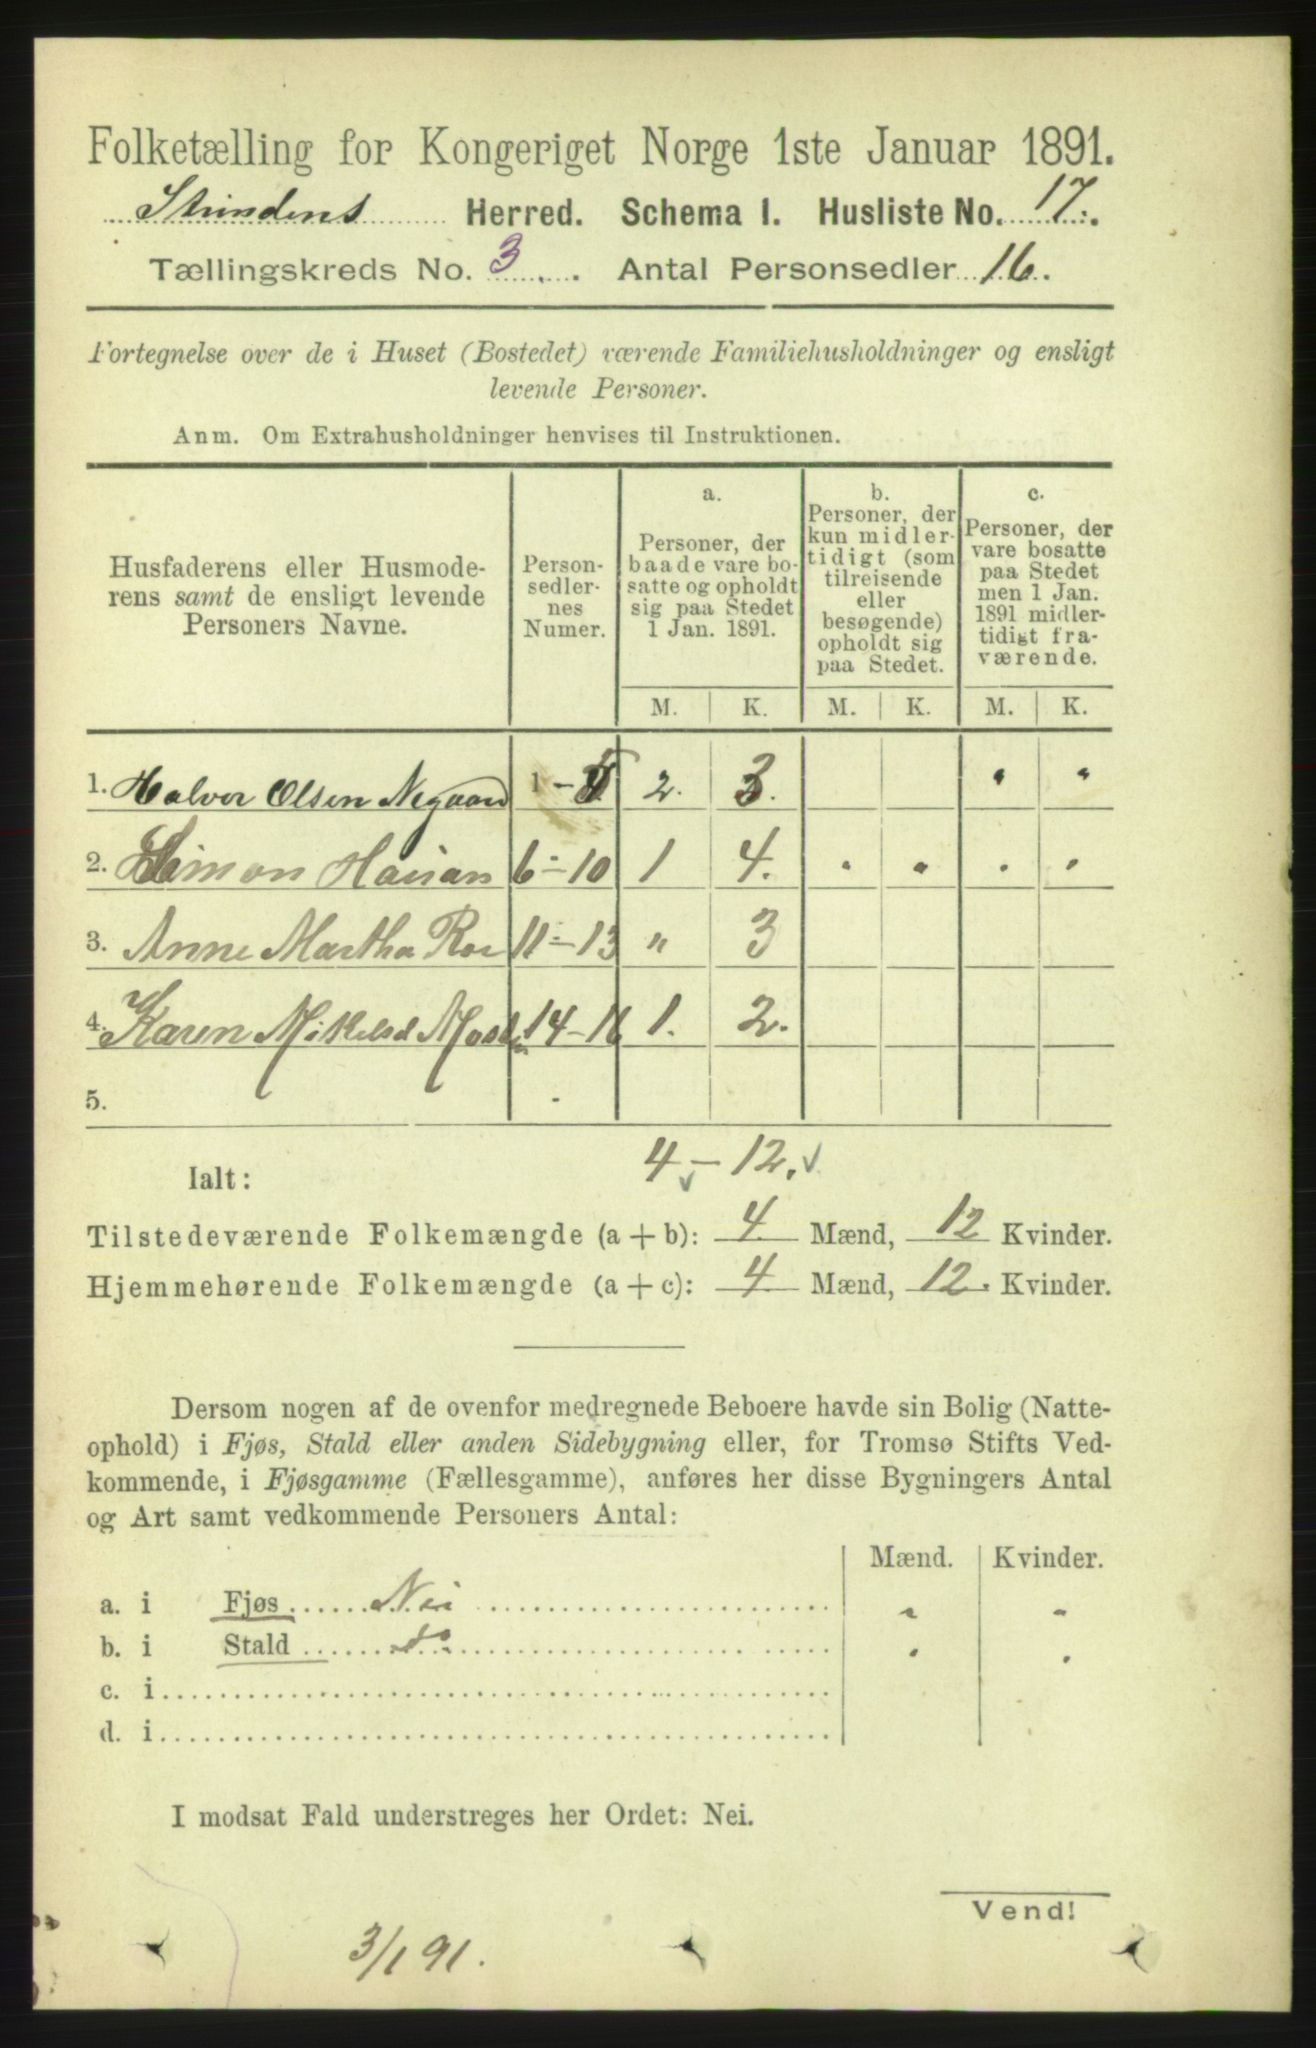 Folketælling for Kongeriget Norge 1ste Januar 1891.
Strindens Herred. Schema I. Husliste No. 17.
Tællingskreds No. 3. Antal Personsedler 16.
Fortegnelse over de i Huset (Bostedet) værende Familiehusholdninger og ensligt
levende Personer.
Anm. Om Extrahusholdninger henvises til Instruktionen.
Husfaderens eller Husmode-
rens samt de ensligt levende
Personers Navne.
Person-
sedler-
nes
Numer.
a.
Personer, der
baade vare bo-
satte og opholdt
sig paa Stedet
1 Jan. 1891.
b.
Personer, der
kun midler-
tidigt (som
tilreisende
eller
besøgende)
opholdt sig
paa Stedet.
c.
Personer, der
vare bosatte
paa Stedet
men 1 Jan.
1891 midler-
tidigt fra-
værende.
M. K. M. K. M. K.
1. Halvor Olsen 1 - 5 2. 3.
2. Simon 6 - 10 1 4.
3. Anne Martha Roe 11 - 13 " 3
4. Karen Mikelsd 14 - 16 1. 2.
5.
4 - 12.
Ialt:
Tilstedeværende Folkemængde (a + b): 4 Mænd, 12 Kvinder.
Hjemmehørende Folkemængde (a + c): 4 Mænd, 12. Kvinder.
Dersom nogen af de ovenfor medregnede Beboere havde sin Bolig (Natte-
ophold) i Fjøs, Stald eller anden Sidebygning eller, for Tromsø Stifts Ved-
kommende, i Fjøsgamme (Fællesgamme), anføres her disse Bygningers Antal
og Art samt vedkommende Personers Antal:
Mænd. Kvinder.
a. i Fjøs Nei
b. i Stald
c. i
d. i
I modsat Fald understreges her Ordet: Nei.
Vend!
3/1 91.